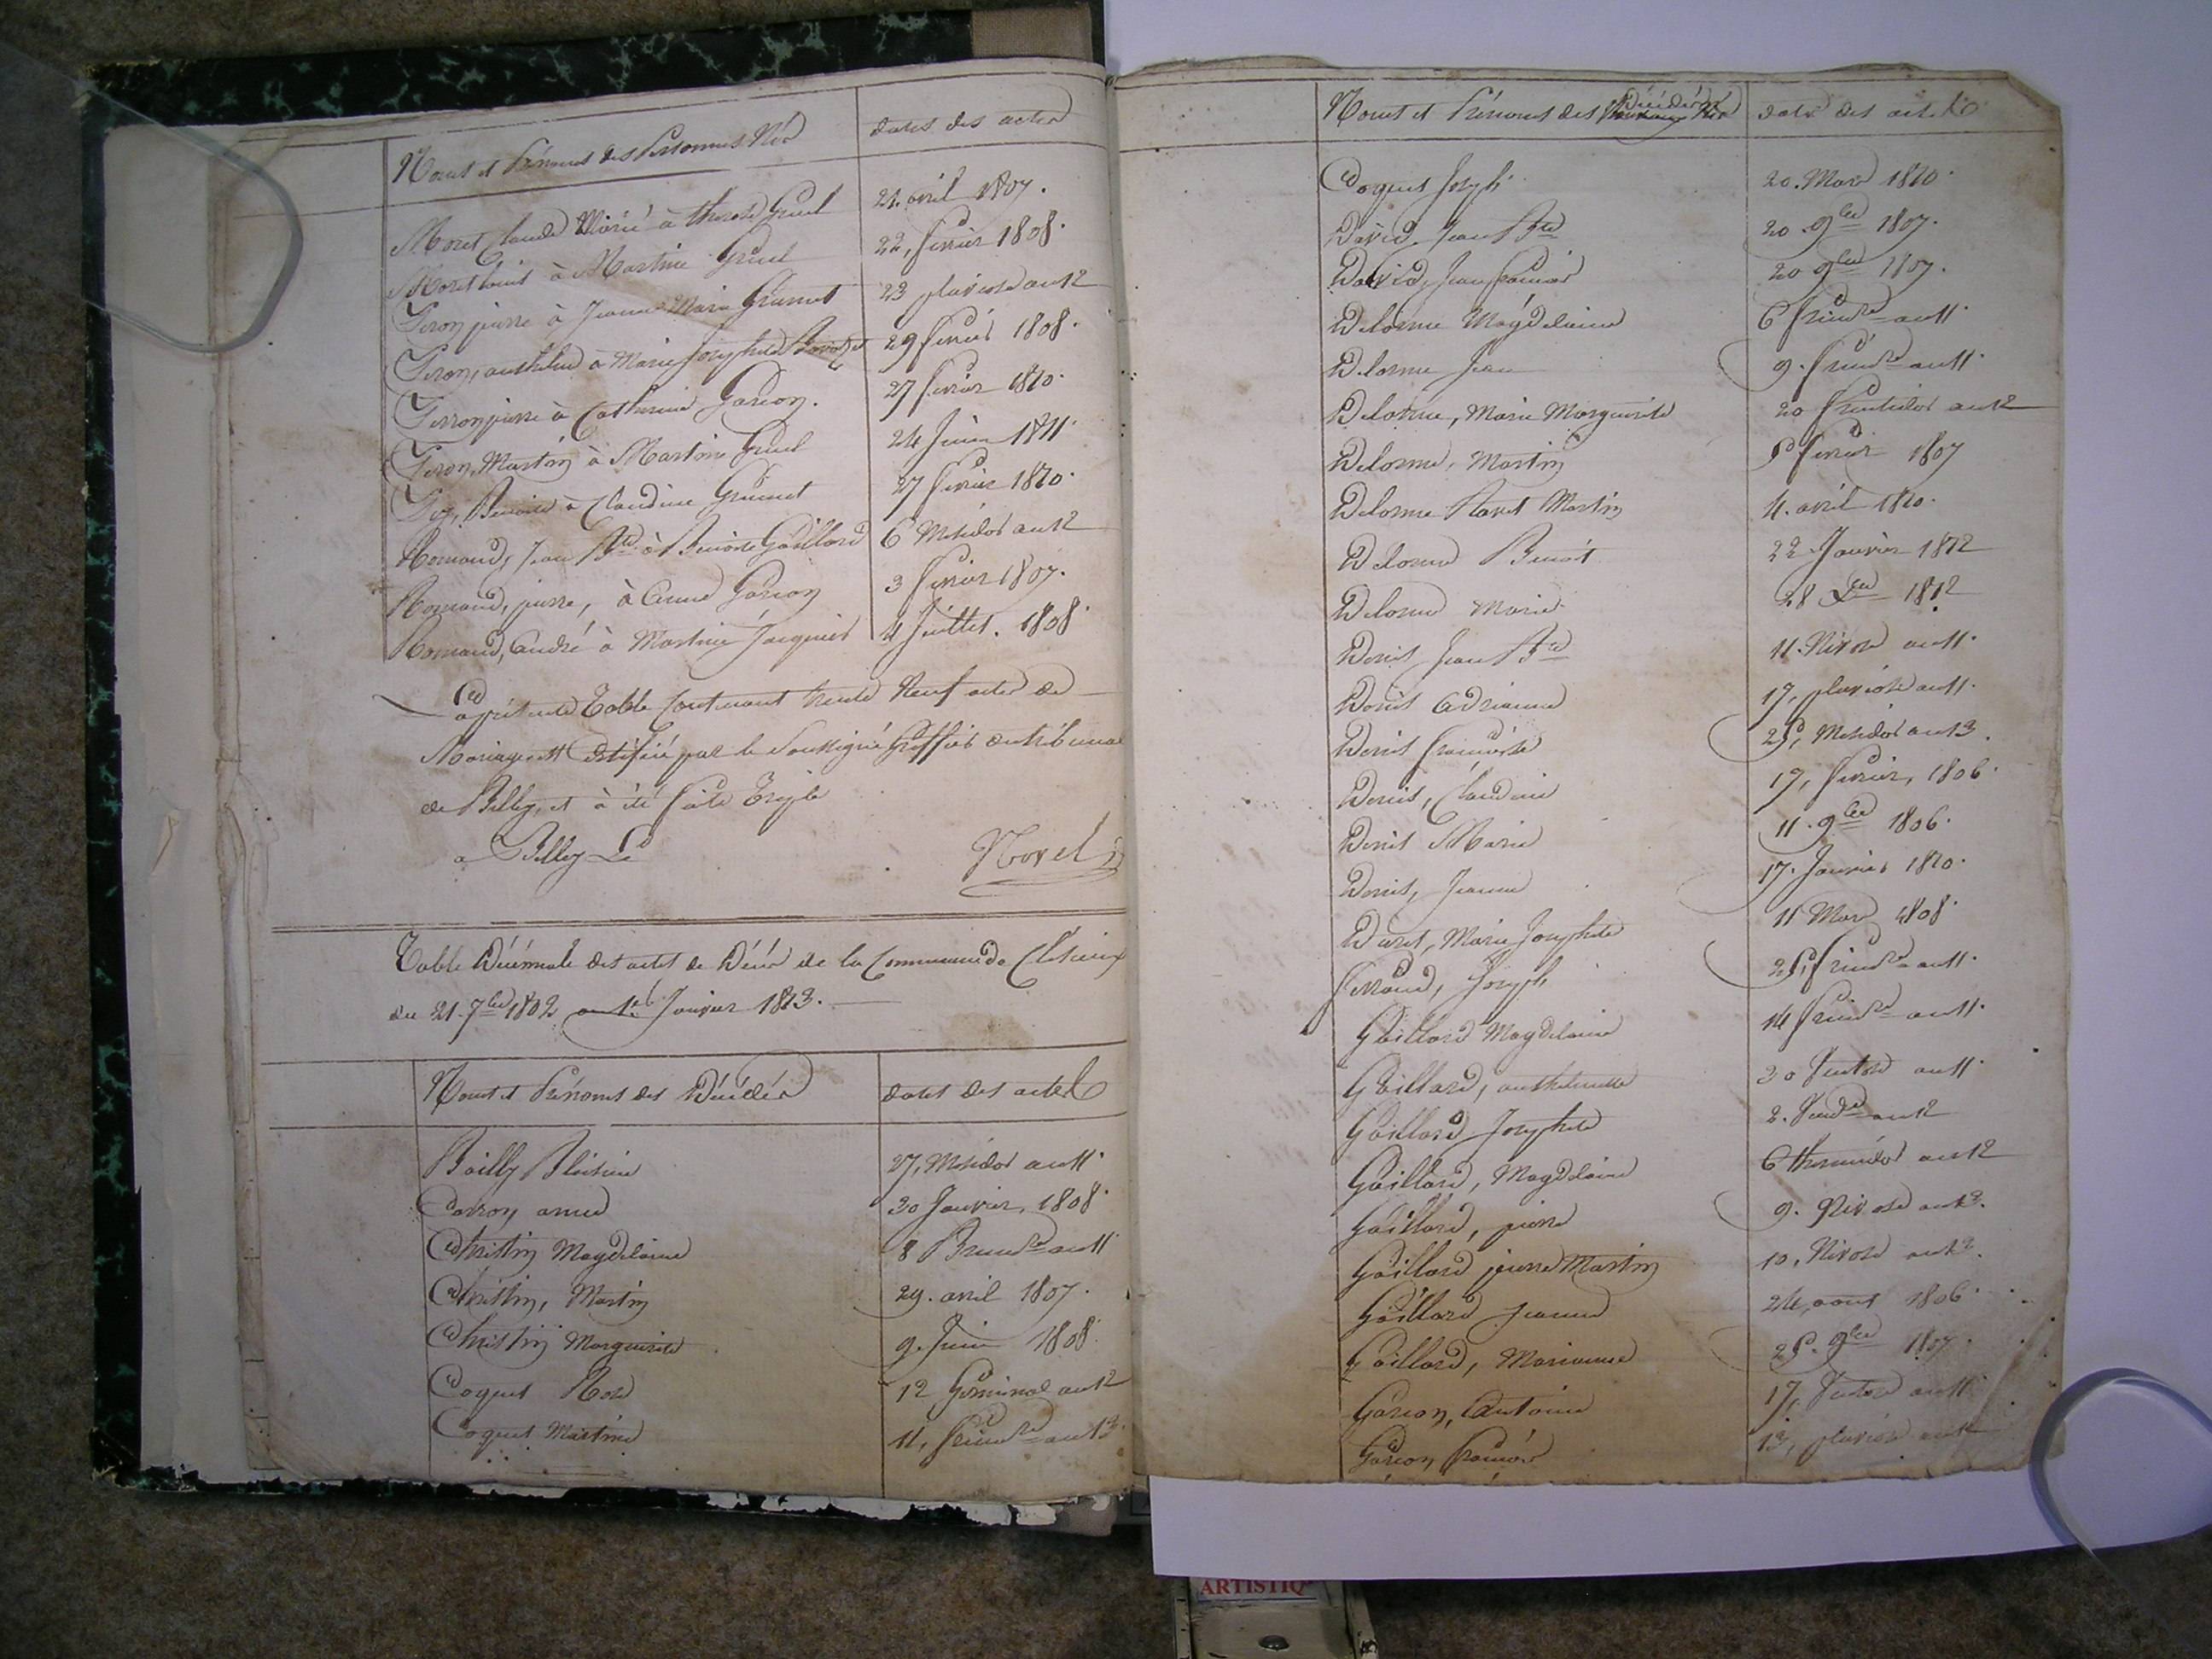 Noms et Prénoms des Personnes Nés
dates des actes
Moret, Claude Marié à therese Gruel
21. avril 1807.
Moret Louis à Martine Gruel
22, fevrier 1808.
Peron pierre à Jeanne Marie Grumet
23 pluviose an 12
Peron, anthelme à Marie Josephte
29 fevrier 1808.
Perron pierre à Catherine Garion.
27 fevrier 1810.
Peron, Martin à Martine Gruel
24 Juin 1811.
à Claudine Grumet
27 fevrier 1810.
Romand, Jean Bte à Benoite Gaillard
6 Messidor an 12
Romand, pierre, à Anne Garion
3 fevrier 1807.
Romand, André à Martine Jacquier
4 Juillet. 1808.
La présente Table Contenant trente Neuf actes de
Mariage est Certifiée par le Soussigné Greffier du tribunal
de Belley, et à été faite Triple
a Belley Le
Morel
Table Décennale des actes de Décès de la Commune de
du 21. 7bre 1802 au 1er Janvier 1813.
Noms et Prénoms des Décédés
dates des actes
Bailly
27, Messidor an 11.
Carron anne
30 Janvier, 1808.
Christin Magdelaine
8 Brumre an 11
Christin, Martin
29. avril 1807.
Christin Marguerite
9. Juin 1808.
Coquet Rose
12 Germinal an 12
Coquet Martine
11, frimre an 13.
Noms et Prénoms des Décédés
dates des actes
Coquet Joseph
20. Mars 1810.
David, Jean Bte
20. 9bre 1807.
David, Jean francois
20 9bre 1807.
Delorme Magdelaine
6 frimre an 11.
Delorme Jean
9. frimre an 11.
Delorme, Marie Marguerite
20 fructidor an 12
Delorme, Martin
fevrier 1807
Delorme Martin
4. avril 1810.
Delorme Benoit
22 Janvier 1812
Delorme Marie
28 Xbre 1812
Denis Jean Bte
11. Nivose an 11.
Denis Adrienne
17, pluviose an 11.
Denis francoise
25, Messidor an 13.
Denis, Claudine
17, fevrier, 1806.
Denis Marie
11. 9bre 1806.
Denis, Jeanne
17. Janvier 1810.
Marie Josephte
11 Mars 1808.
Joseph
25, frimre an 11.
Gaillard Magdelaine
14 frimre an 11.
Gaillard, anthelmette
30 Ventose an 11.
Gaillard Josephte
2. Vendre an 12
Gaillard, Magdelaine
6 thermidor an 12
Gaillard, pierre
9. Nivose an 13.
Gaillard pierre Martin
10, Nivose an 13.
Gaillard Jeanne
24, aout 1806.
Gaillard, Marianne
25. 9bre 1807.
Garion, Antoine
17, Ventose an 11
Garion, francois
13, pluviose an 12
ARTISTIQ